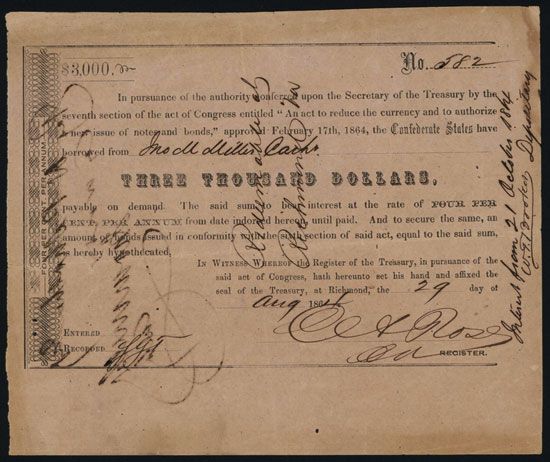 $3,000.
No. 582
In pursuance of the authority conferred upon the Secretary of the Treasury by the
seventh section of the act of Congress entitled "An act to reduce the currency and to authorize
a new issue of notes and bonds," approved February 17th, 1864, the Confederate States have
borrowed from Jno M Miller Cashr
THREE THOUSAND DOLLARS,
payable on demand. The said sum to bear interest at the rate of FOUR PER
CENT. PER ANNUM from date indorsed hereon, until paid. And to secure the same, an
amount of bonds issued in conformity with the sixth section of said act, equal to the said sum,
is hereby hypothecated,
In Witness Whereof the Register of the Treasury, in pursuance of the
said act of Congress, hath hereunto set his hand and affixed the
seal of the Treasury, at Richmond, the 29 day of
Aug 1864
Entered
Recorded
Rose
REGISTER.
FOUR PER CENT PER ANNUM
Redeemable at
Richmond
Interest from 21 October 1864
Depositary